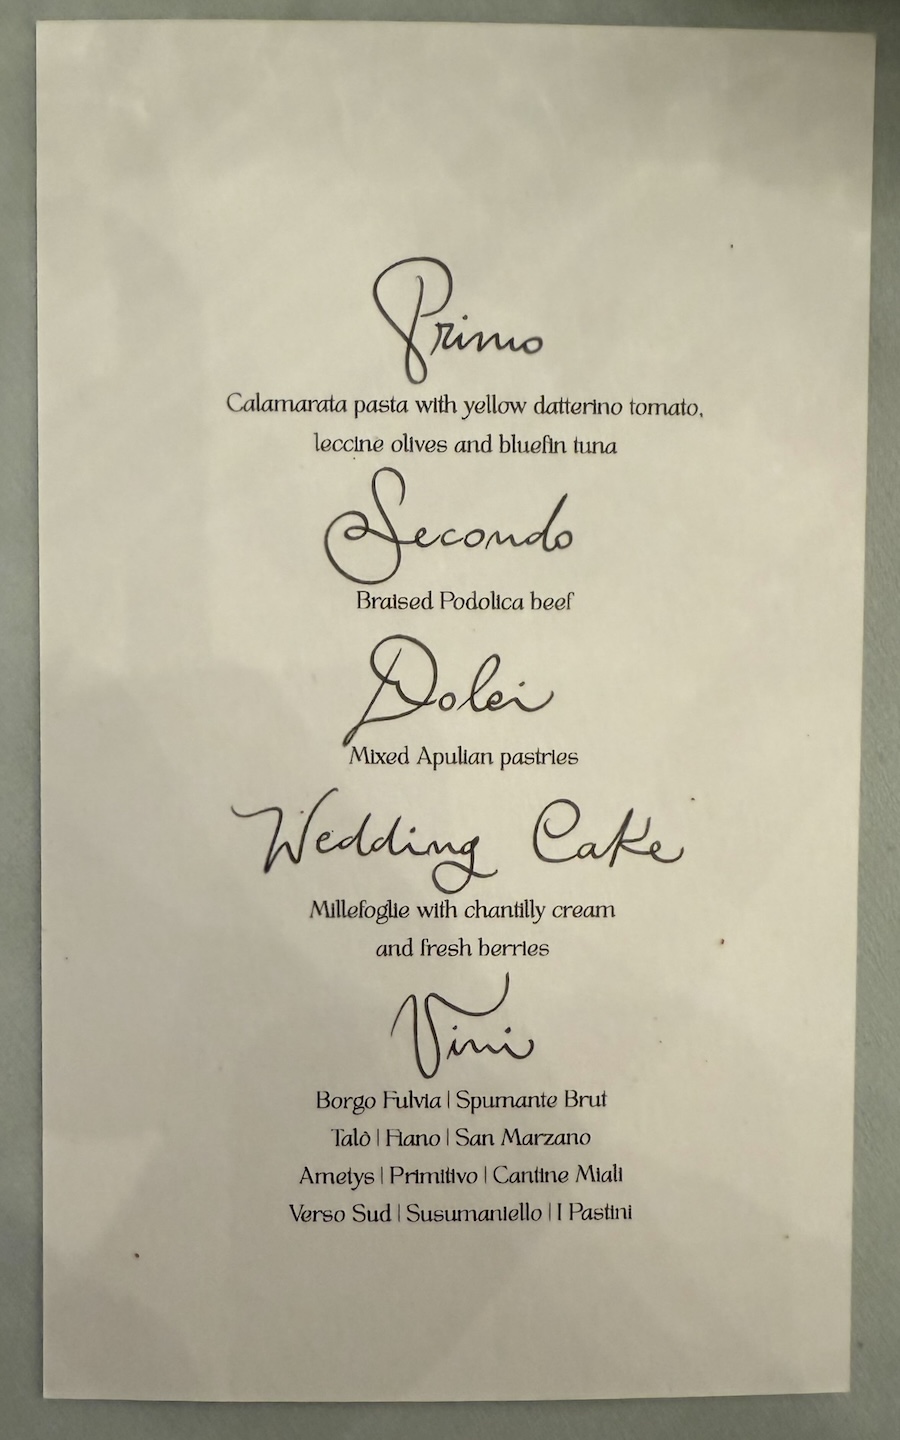 Primo
Calamarata pasta with yellow datterino tomato,
leccine olives and bluefin tuna
Secondo
Braised Podolica beef
Dolci
Mixed Apulian pastries
Wedding Cake
Millefoglie with chantilly cream
and fresh berries
Vini
Borgo Fulvia | Spumante Brut
Talò | Fiano | San Marzano
Ametys | Primitivo | Cantine Miali
Verso Sud | Susumaniello | I Pastini